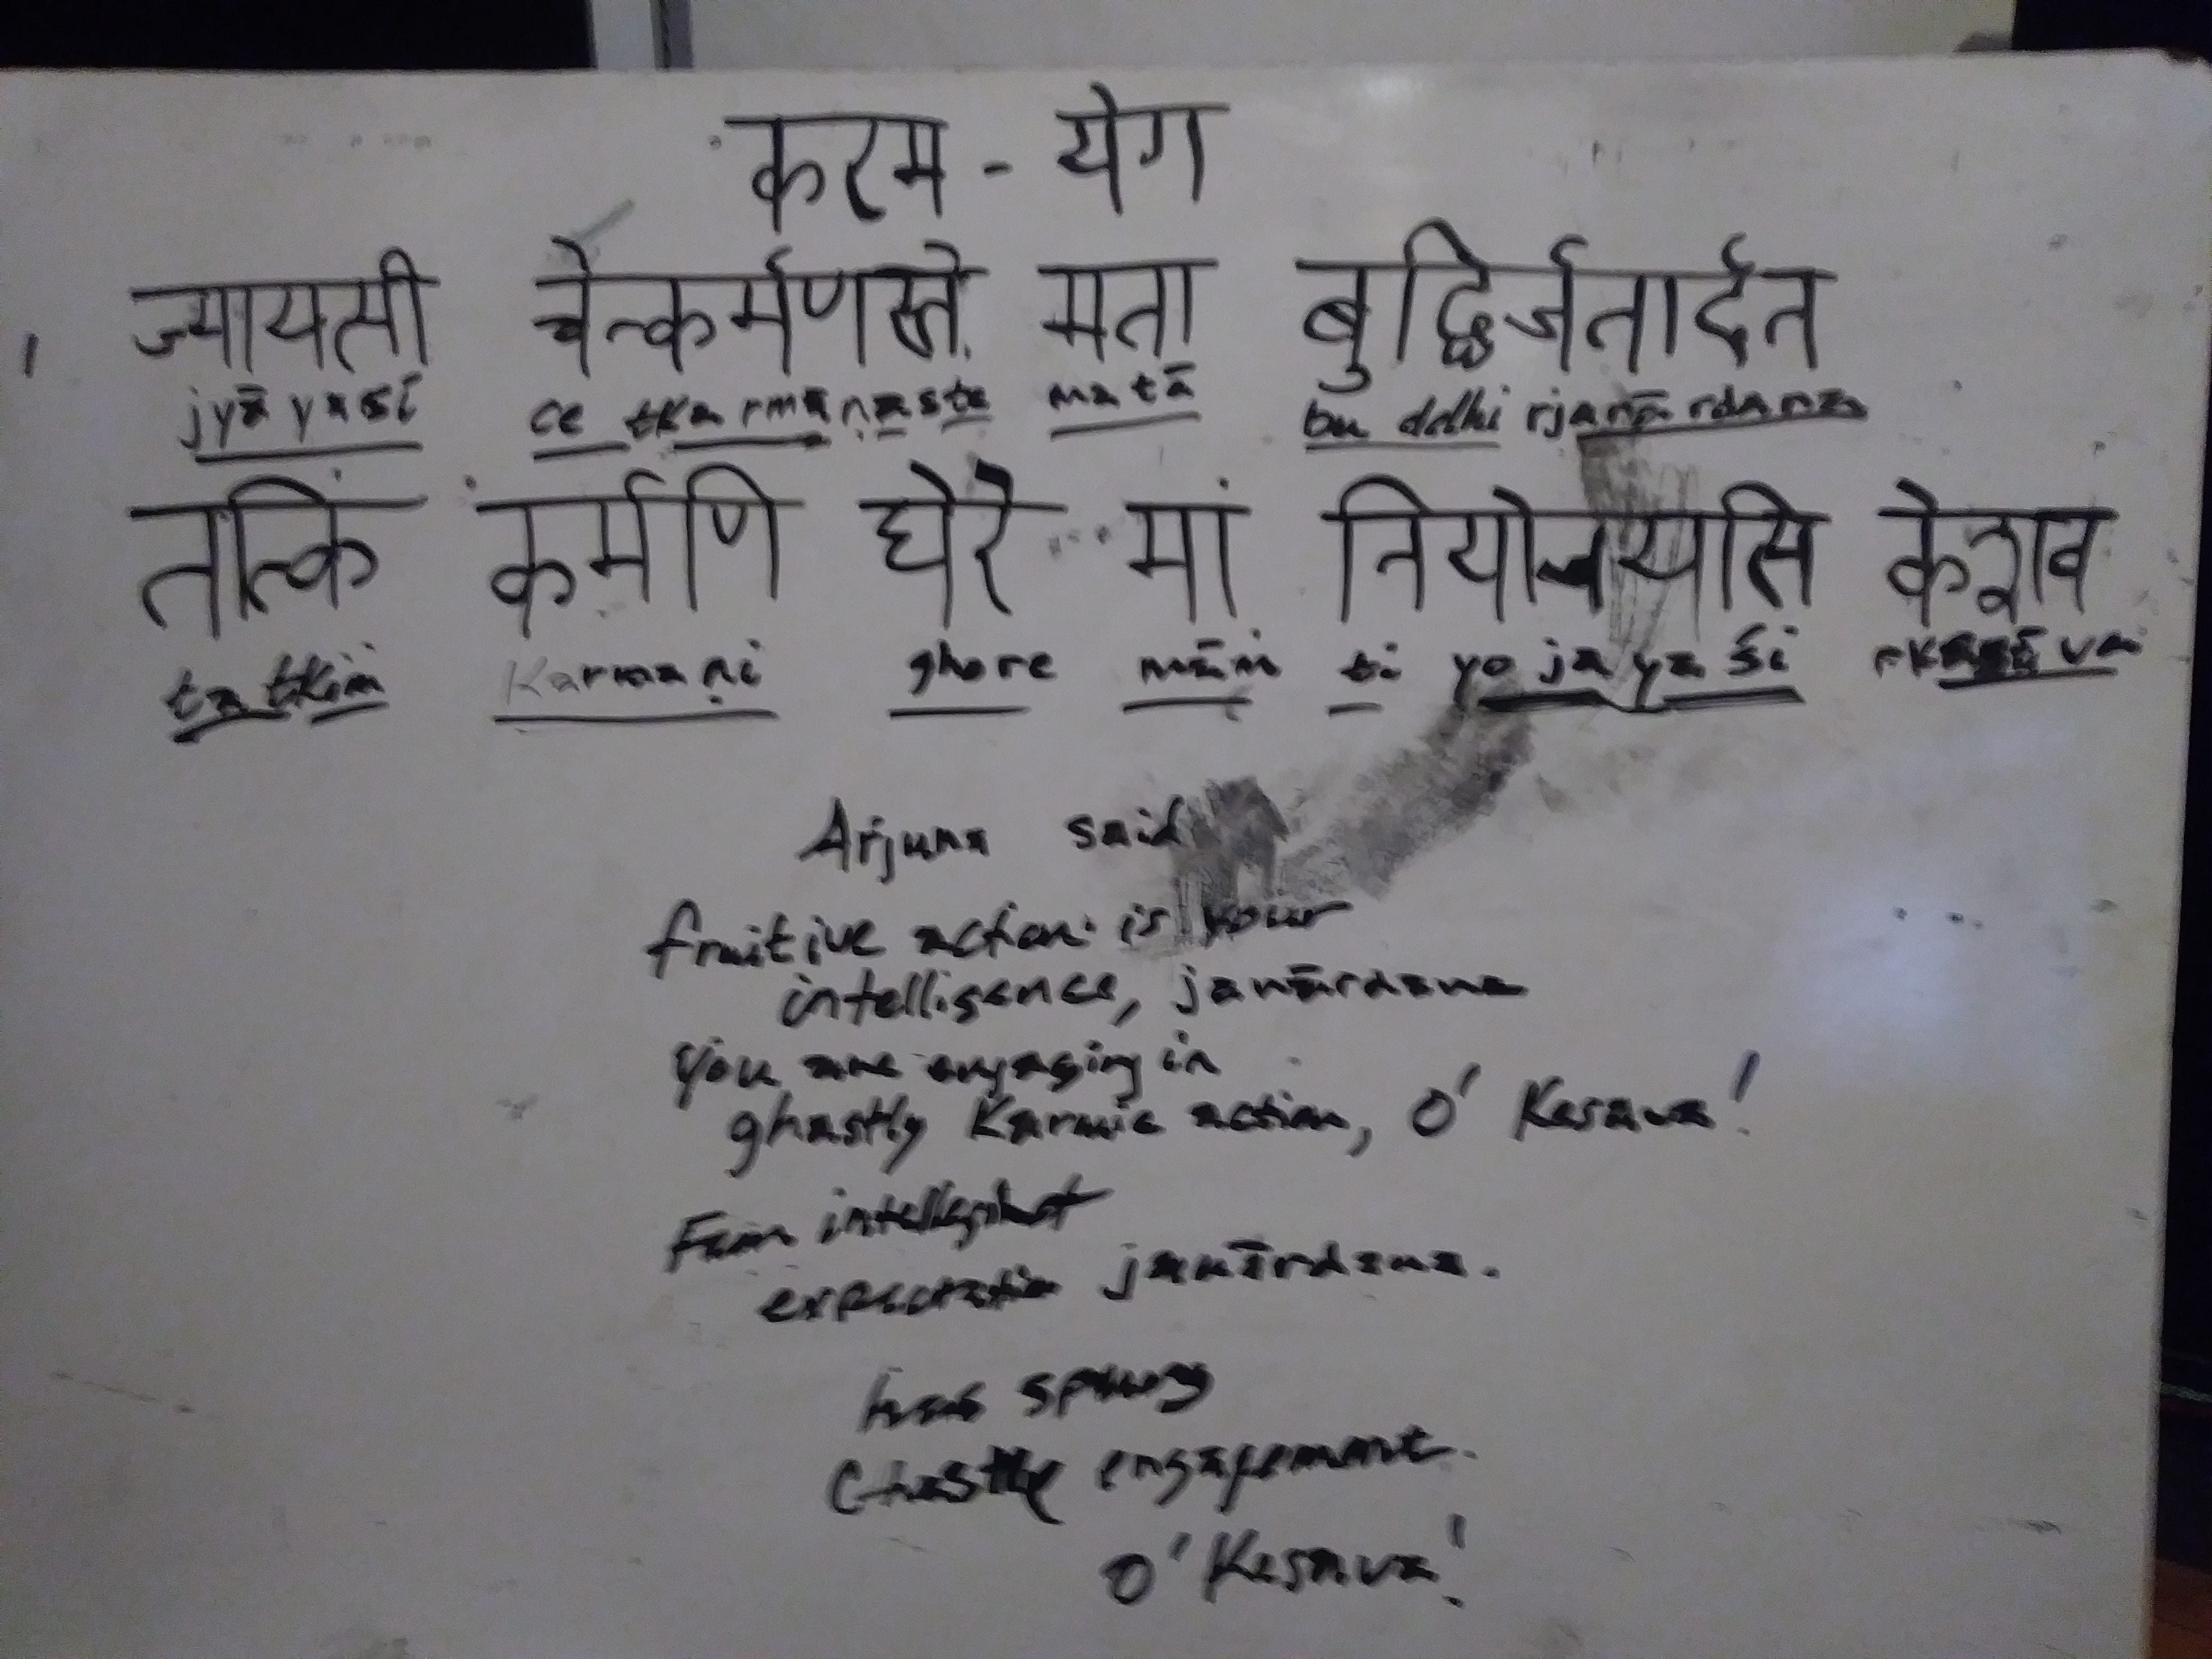 करम - येग
ज्यायसी चेत्कर्मणस्ते मता बुद्धिर्जतार्दत
jyā yasī ce tka rmā ṇa ste ma tā bu ddhi rjanā rdana
तत्किं कर्मणि घेरे मां तियोजयसि केशव
ta tkiṁ Karma ṇi ghore māṁ ti yo ja ya śi
Arjuna said
fruitive action is your
intelligence, janārdana
you are engaging in
ghastly Karmic action, O' Kesava!
intelligent
expectation janārdana.
has sprung
engagement.
O' Kesava!